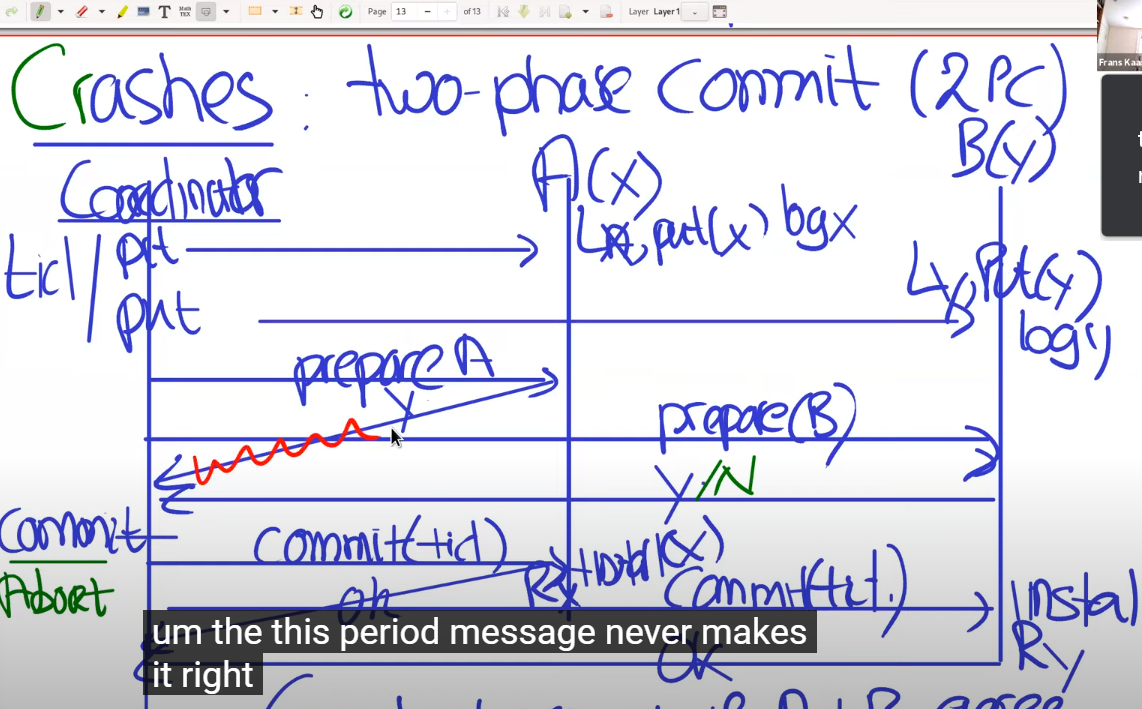 Page 13 of 13 Layer Layer 1
Frans Kaa
Crashes : two-phase Commit (2PC)
Coordinator A(x) B(y)
tid / put Lx, put(x) log x
put Ly Put(y)
log y
prepare A
Y
prepare(B)
Y/N
Commit
Abort
commit(tid)
ok
Rx install(x)
Commit(tid)
Instal
Ry
OK
um the this period message never makes
it right